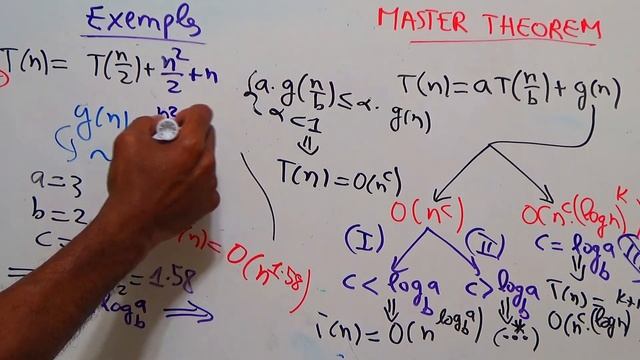 Exemples
T(n) = T(n/2) + n²/2 + n
g(n)
a = 3
b = 2
c =
= 1.58
log_b^a ⇒
(n) = O(n^1.58)
MASTER THEOREM
{ a. g(n/b) ≤ α. g(n)
α < 1
⇓
T(n) = O(n^c)
T(n) = aT(n/b) + g(n)
O(n^c)
O(n^c.(logn)^K
(I)
(II)
c < log_b^a
c > log_b^a
c = log_b^a
⇓
⇓
⇓
T(n) = O(n^(log_b^a))
(...*...)
T(n) =
O(n^c.(logn)^K+